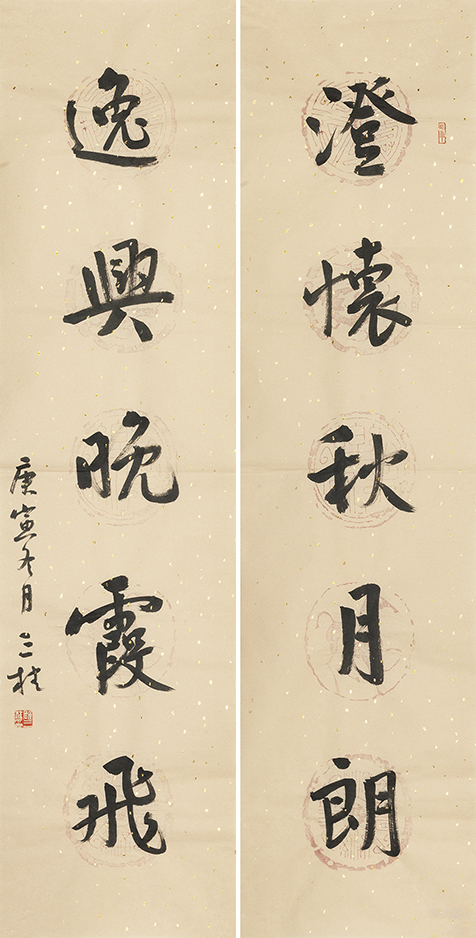 澄懷秋月朗
逸興晚霞飛
庚寅冬月 三桂